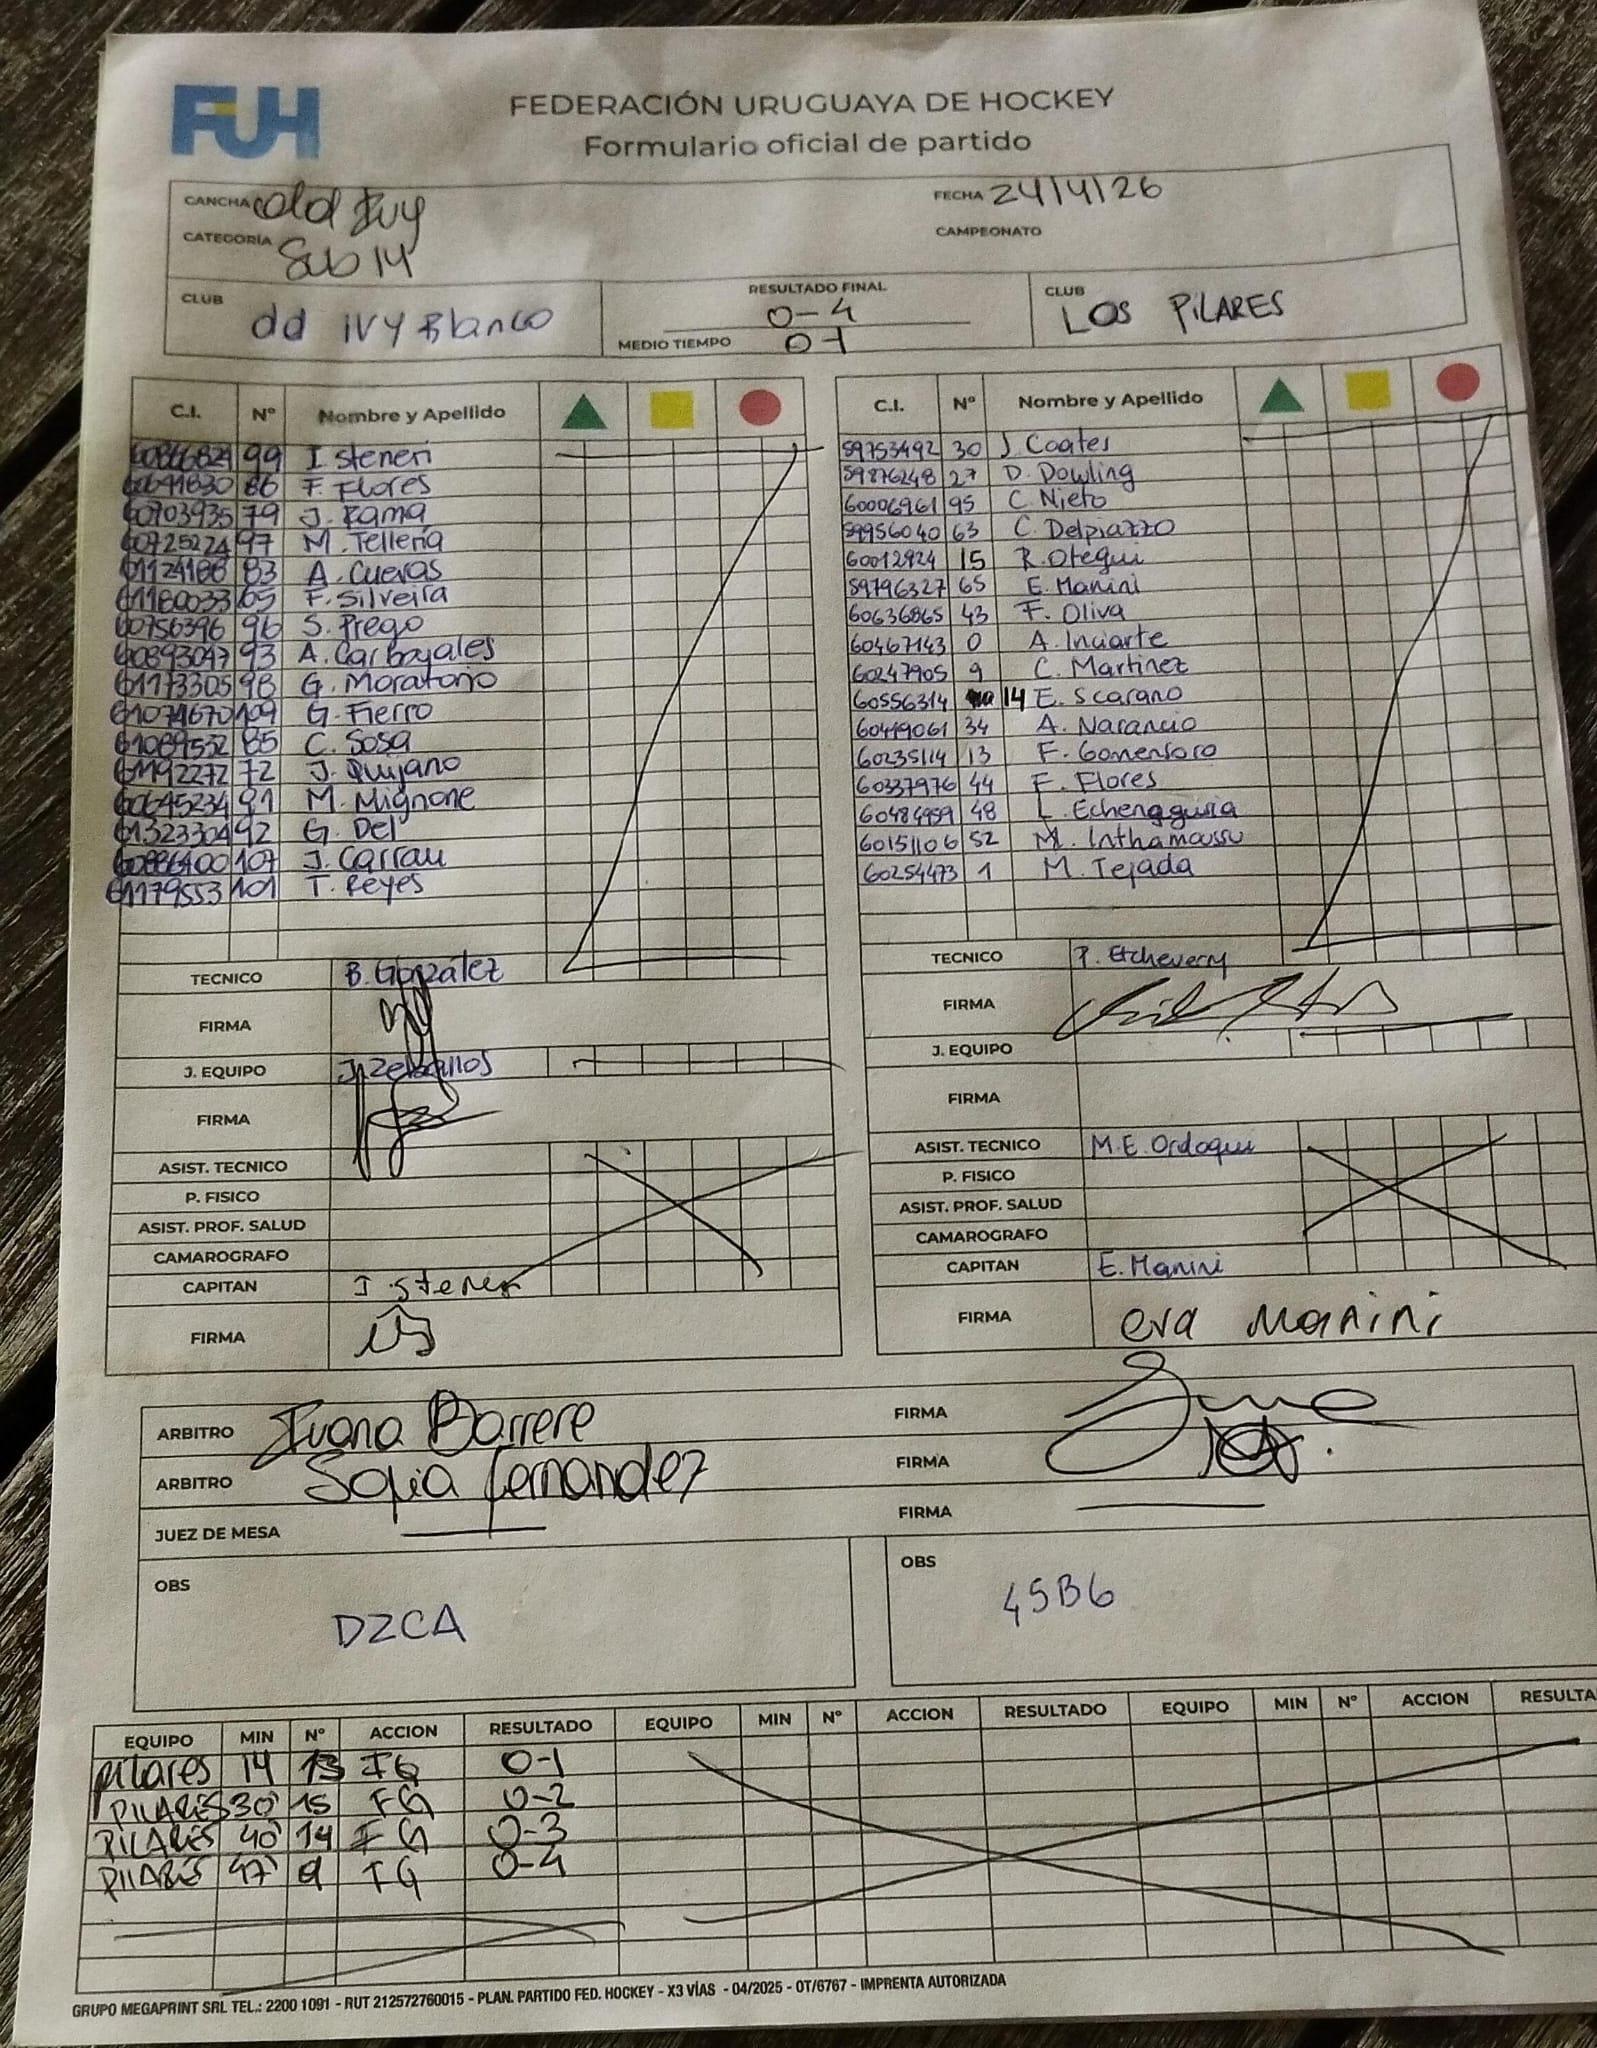 FUH
FEDERACIÓN URUGUAYA DE HOCKEY
Formulario oficial de partido
CANCHA old Ivy
FECHA 24/4/26
CATEGORÍA Sub 14
CAMPEONATO
CLUB old IVY Blanco
RESULTADO FINAL 0-4
MEDIO TIEMPO 0-1
CLUB LOS PILARES
C.I. Nº Nombre y Apellido
99 I. steneri
86 F. Flores
60703935 79 J. Rama
60725224 97 M. Telleria
61124188 83 A. Cuevas
61180033 105 F. Silveira
60756396 96 S. Prego
60893047 93 A. Carbajales
61173305 98 G. Moratorio
61074670 109 G. Fierro
61089532 85 C. Sosa
61192272 72 J. Quijano
60645234 91 M. Mignone
61323304 92 G. Del
60886400 107 J. Carrau
61179553 101 T. Reyes
TECNICO B. González
FIRMA
J. EQUIPO J. Zeballos
FIRMA
ASIST. TECNICO
P. FISICO
ASIST. PROF. SALUD
CAMAROGRAFO
CAPITAN I. steneri
FIRMA
C.I. Nº Nombre y Apellido
59753492 30 J. Coates
59876248 27 D. Dowling
60006961 95 C. Nieto
59956040 63 C. Delpiazzo
60012924 15 R. Otegui
59796327 65 E. Manini
60636865 43 F. Oliva
60467143 0 A. Inciarte
60247905 9 C. Martinez
60556314 14 E. Scarano
60449061 34 A. Narancio
60235114 13 F. Gomensoro
60337976 44 F. Flores
60484959 48 L.
60151106 52 M. Inthamoussu
60254473 1 M. Tejada
TECNICO P. Etchevery
FIRMA
J. EQUIPO
FIRMA
ASIST. TECNICO M.E. Ordoqui
P. FISICO
ASIST. PROF. SALUD
CAMAROGRAFO
CAPITAN E. Manini
FIRMA eva Manini
ARBITRO Ivana Barrere FIRMA
ARBITRO Sofia fernandez FIRMA
JUEZ DE MESA FIRMA
OBS DZCA
OBS 45B6
EQUIPO MIN Nº ACCION RESULTADO EQUIPO MIN Nº ACCION RESULTADO EQUIPO MIN Nº ACCION RESULTA
pilares 14 13 FG 0-1
PILARES 30' 15 FG 0-2
PILARES 40' 14 FG 0-3
PILARES 47' 9 FG 0-4
GRUPO MEGAPRINT SRL TEL.: 2200 1091 - RUT 212572760015 - PLAN. PARTIDO FED. HOCKEY - X3 VÍAS - 04/2025 - OT/6767 - IMPRENTA AUTORIZADA